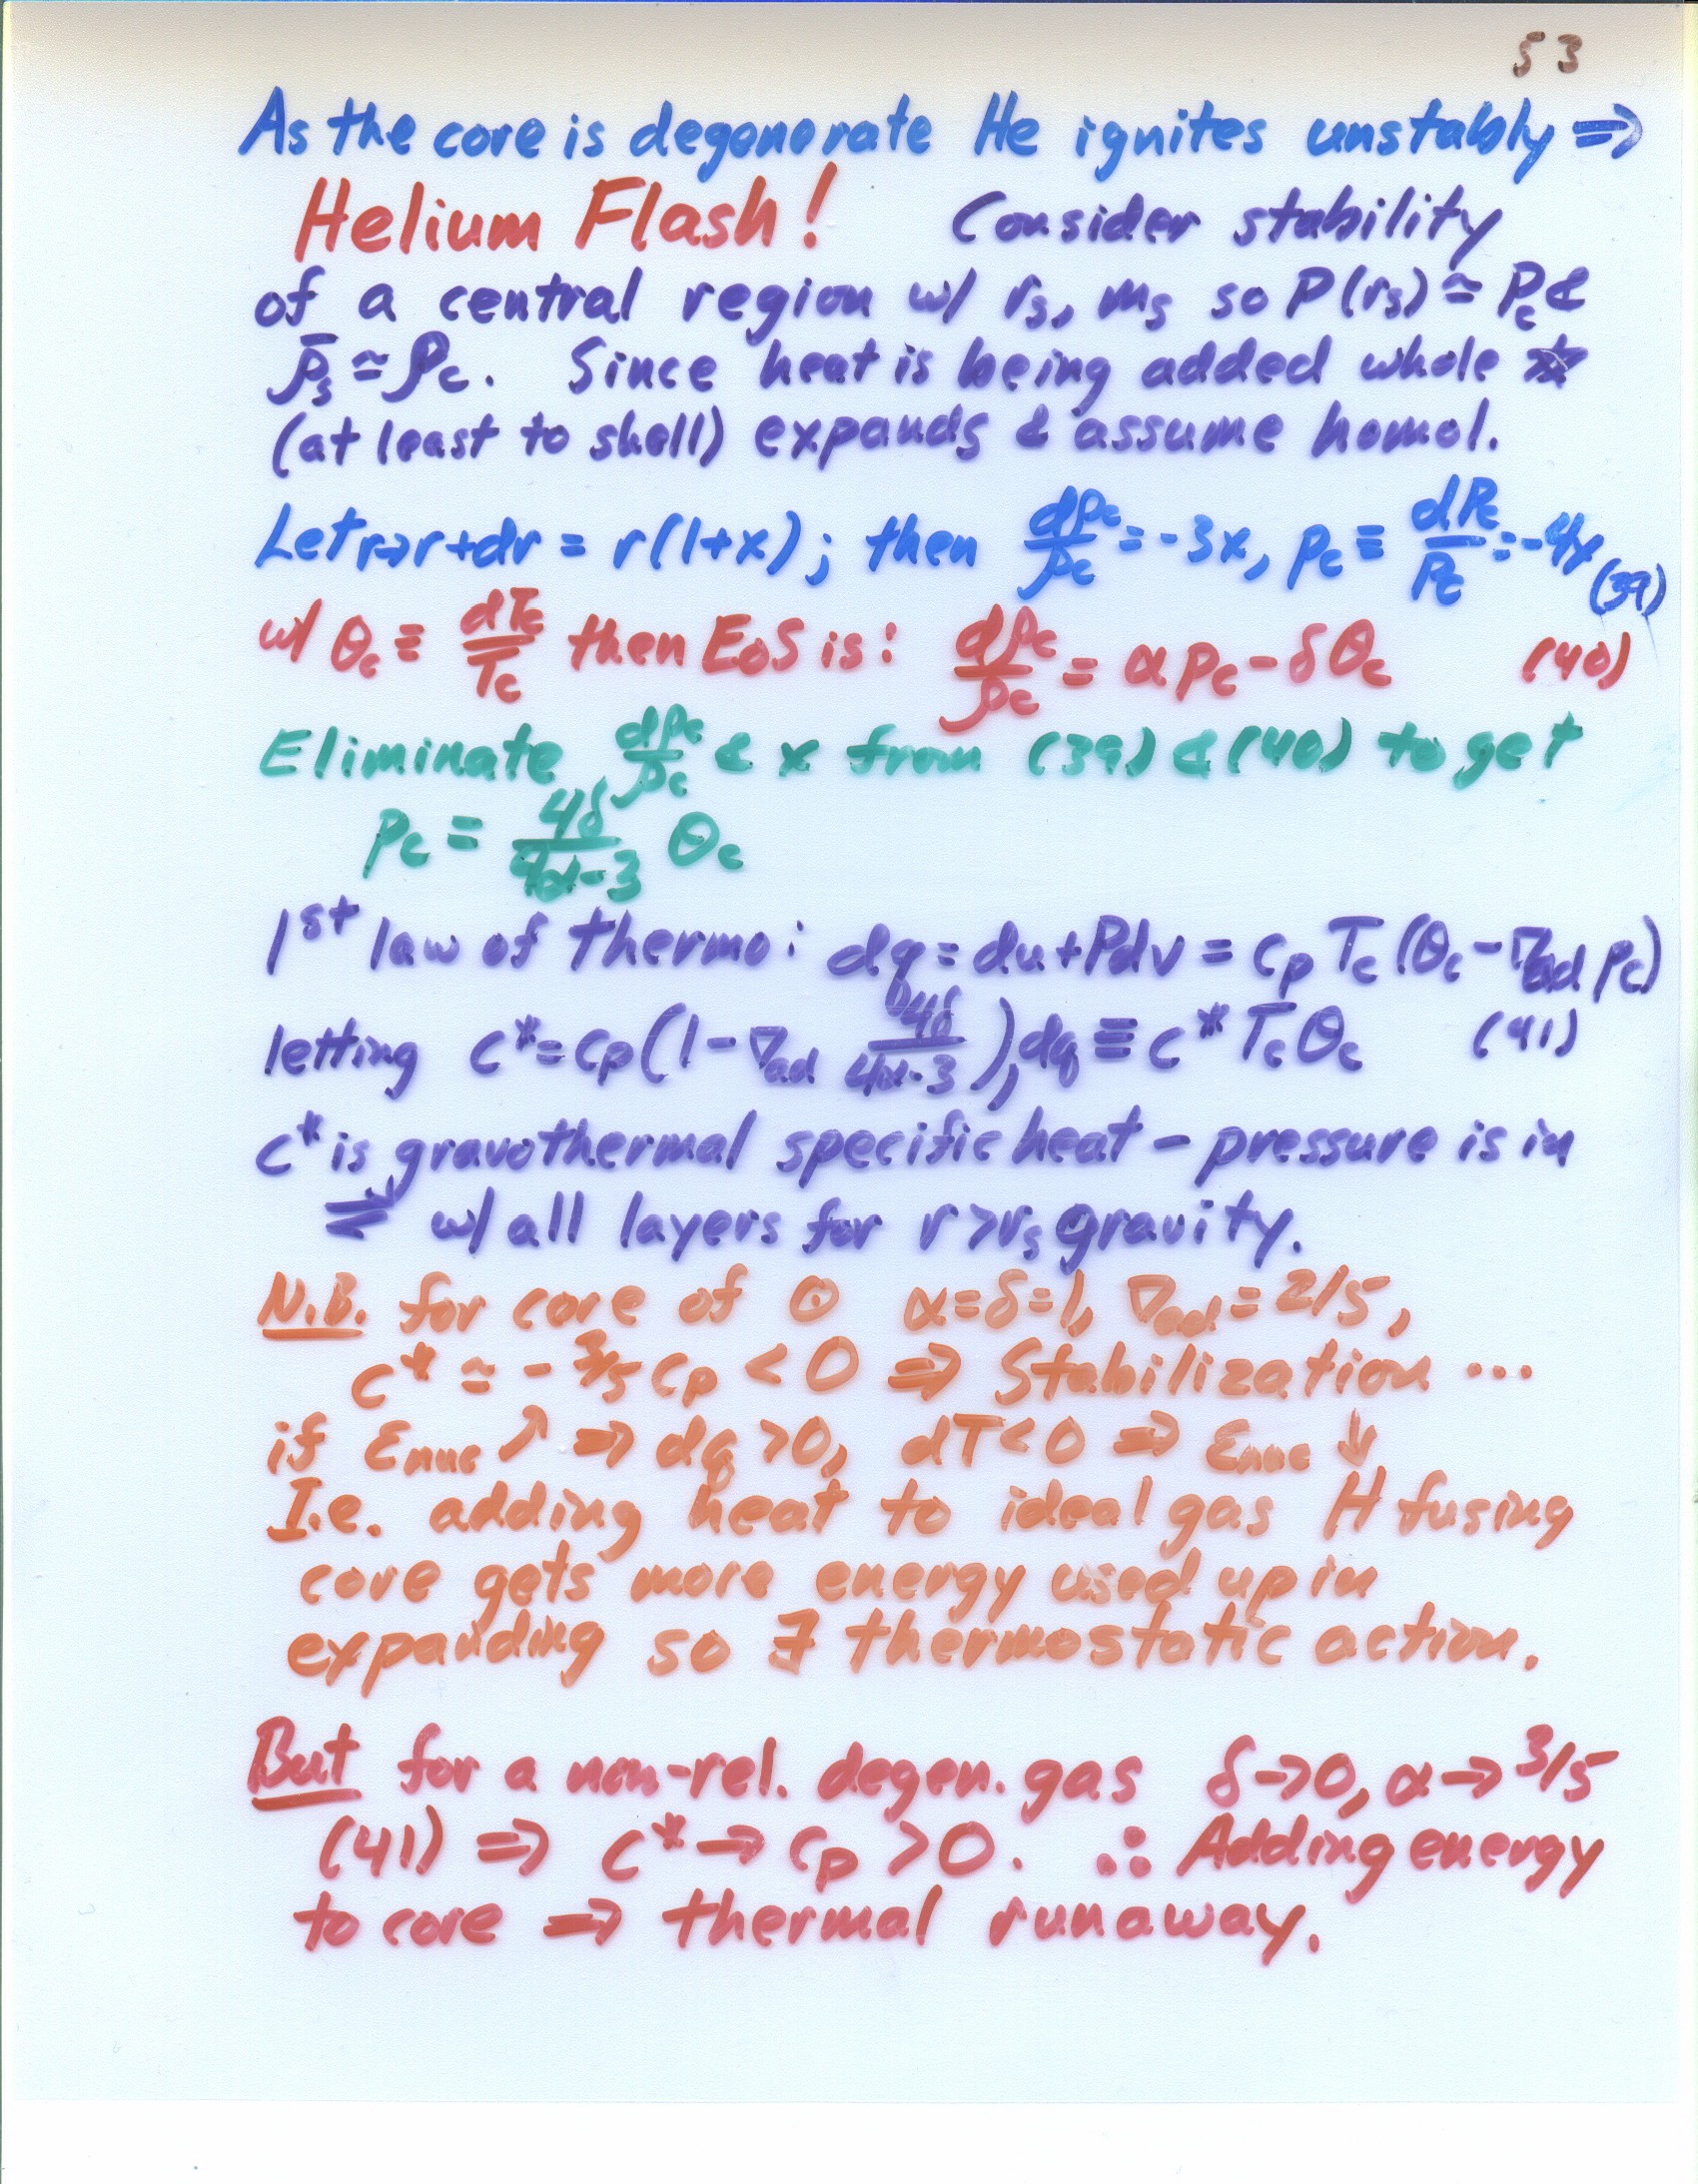 53
As the core is degenerate He ignites unstably ⇒
Helium Flash! Consider stability
of a central region w/ rₛ, mₛ so P(rₛ) ≃ P_c &
ρ̄ₛ ≃ ρ_c. Since heat is being added whole ☆
(at least to shell) expands & assume homol.
Let r→r+dr = r(1+x); then dρ_c/ρ_c = -3x, p_c ≡ dP_c/P_c = -4x (39)
w/ θ_c ≡ dT_c/T_c then EoS is: dρ_c/ρ_c = αp_c - δθ_c (40)
Eliminate dρ_c/ρ_c & x from (39) & (40) to get
p_c = 4δ/(4α-3) θ_c
1st law of thermo: dq = du + Pdv = c_p T_c (θ_c - ∇_ad p_c)
letting c* = c_p(1 - ∇_ad 4δ/(4α-3)), dq ≡ c* T_c θ_c (41)
c* is gravothermal specific heat - pressure is in
⇌ w/ all layers for r > rₛ gravity.
N.B. for core of ⊙ α=δ=1, ∇_ad = 2/5,
c* ≃ - 3/5 c_p < 0 ⇒ Stabilization ...
if ε_nuc ↗ ⇒ dq > 0, dT < 0 ⇒ ε_nuc ↓
I.e. adding heat to ideal gas H fusing
core gets more energy used up in
expanding so ∃ thermostatic action.
But for a non-rel. degen. gas δ→0, α→3/5
(41) ⇒ c* → c_p > 0. ∴ Adding energy
to core ⇒ thermal runaway.